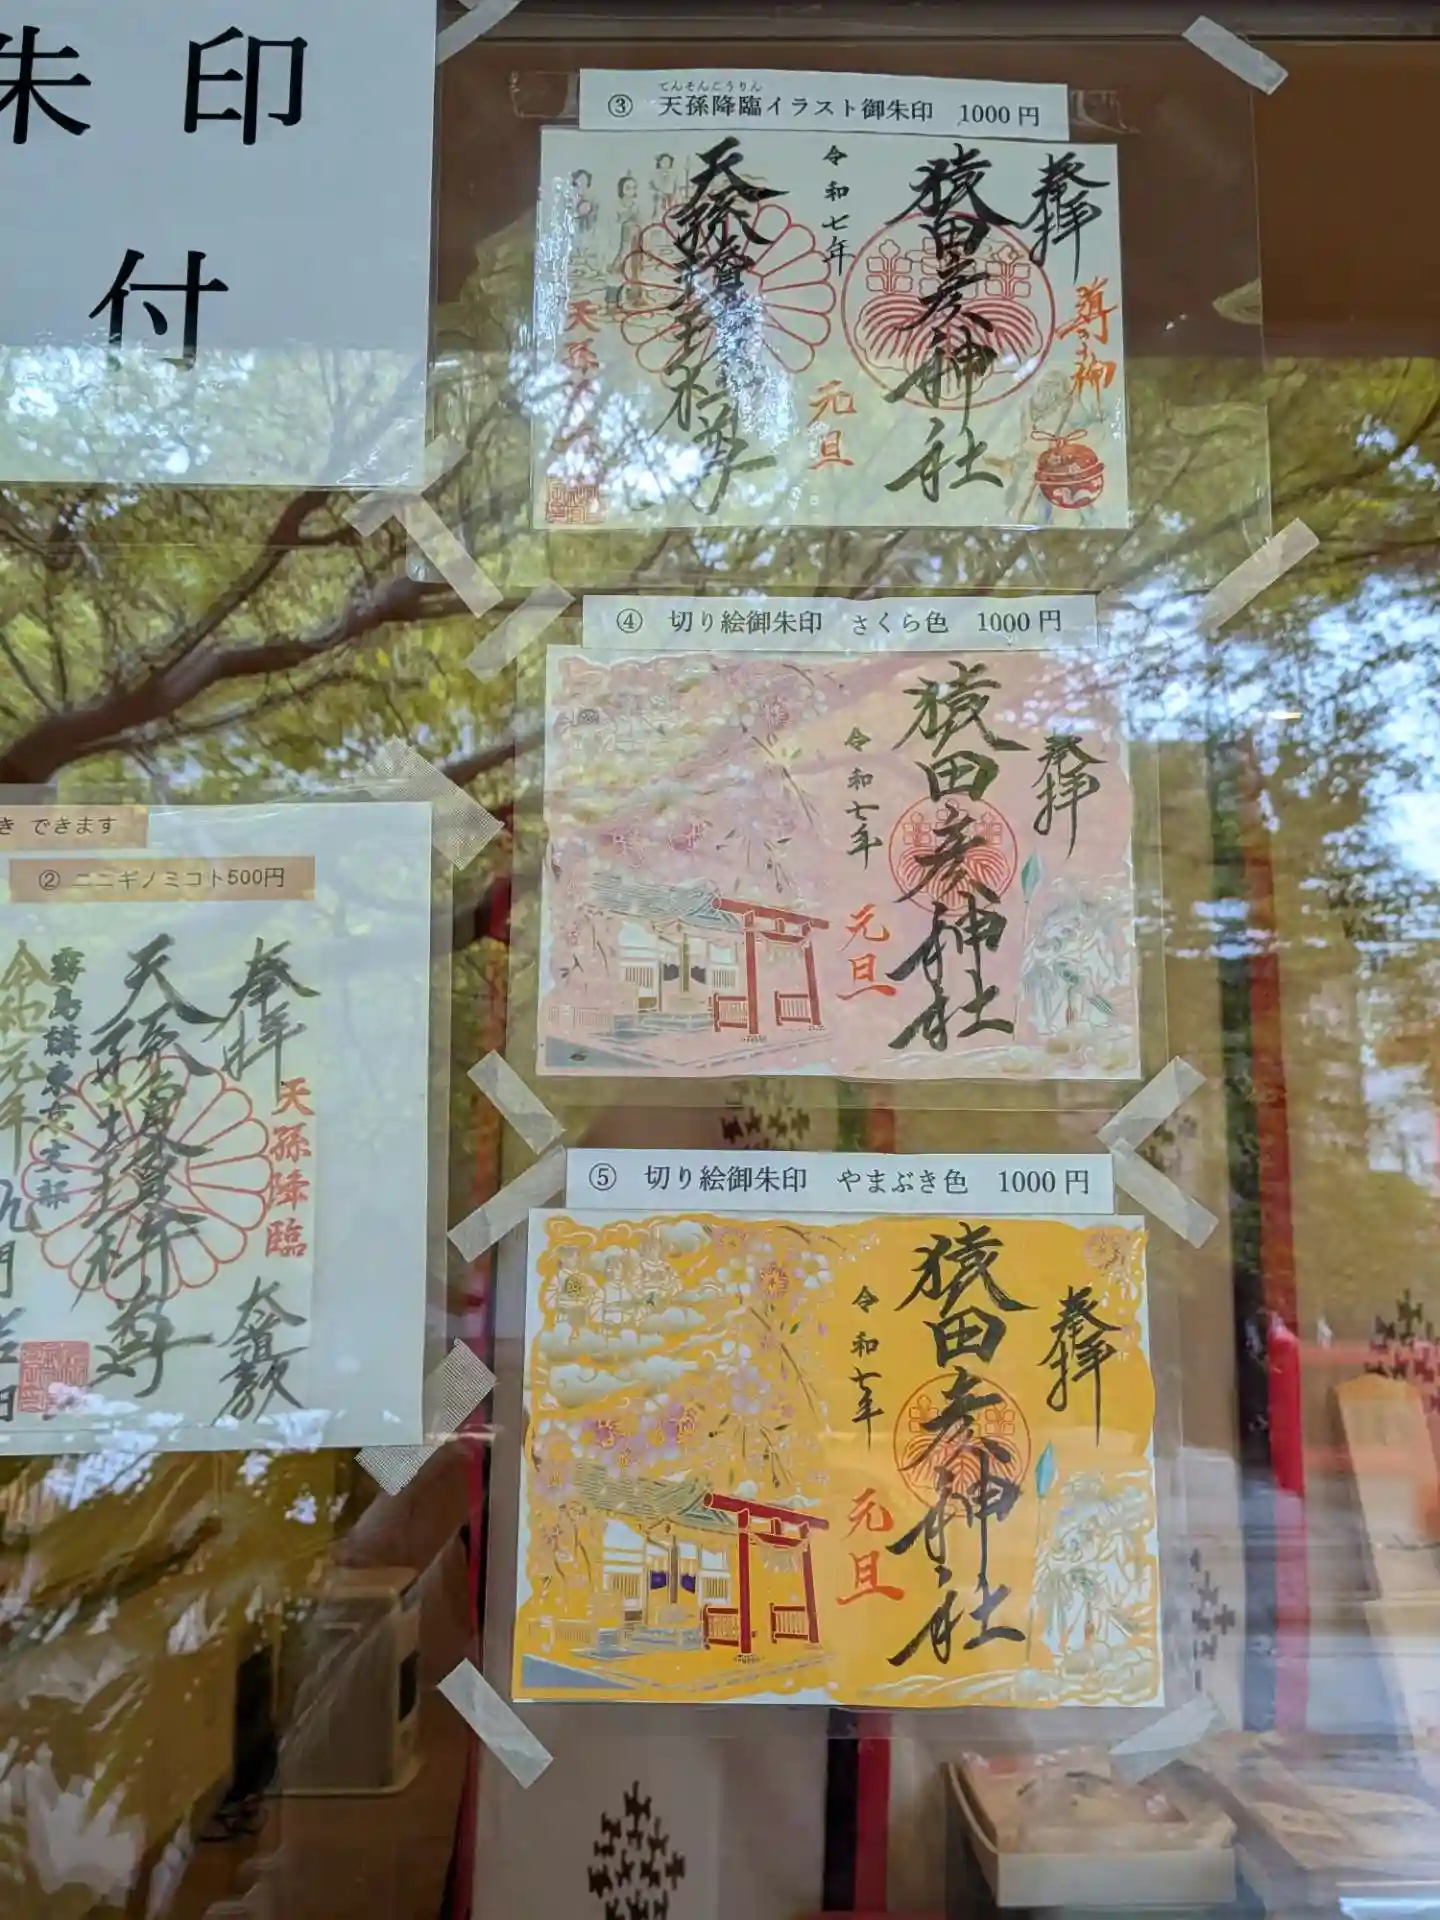 朱印
付
③ 天孫降臨イラスト御朱印 1000円
てんそんこうりん
奉拝
導の神
猿田彦神社
令和七年
元旦
④ 切り絵御朱印 さくら色 1000円
奉拝
猿田彦神社
令和七年
元旦
き できます
② ニニギノミコト500円
奉拝
天孫降臨
霧島講東京支部
⑤ 切り絵御朱印 やまぶき色 1000円
奉拝
猿田彦神社
令和七年
元旦